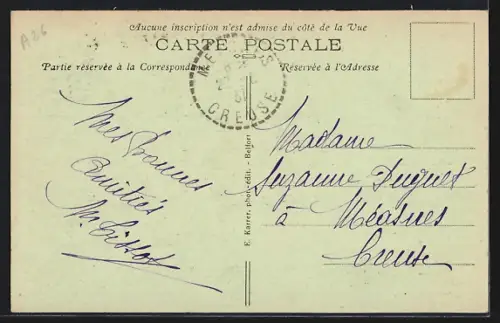 A26
Aucune inscription n'est admise du côté de la Vue
CARTE POSTALE
Partie réservée à la Correspondance
Réservée à l'Adresse
CREUSE
Mes bonnes
Amitiés
M. Tissot
E. Karrer, phot.-édit. - Belfort
Madame
Suzanne Duguet
à Méasnes
Creuse